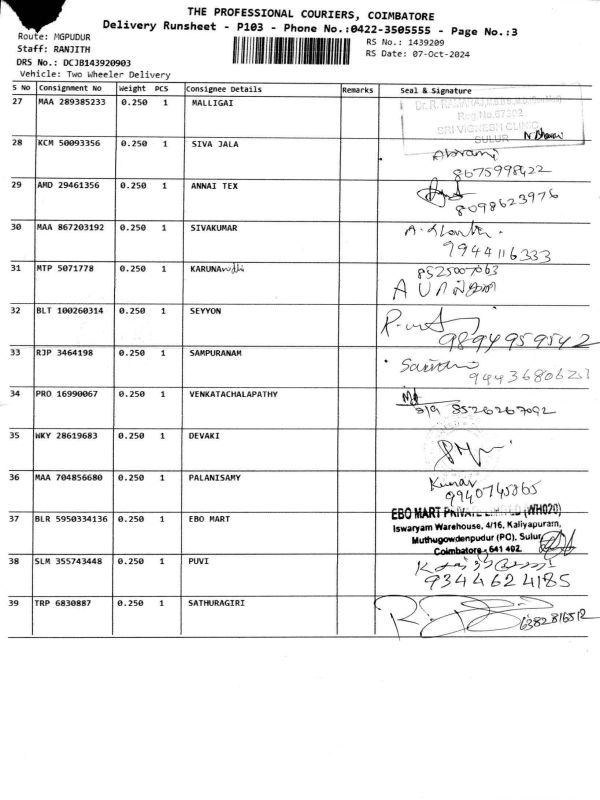 THE PROFESSIONAL COURIERS, COIMBATORE
Delivery Runsheet - P103 - Phone No.:0422-3505555 - Page No.:3
Route: MGPUDUR
RS No.: 1439209
Staff: RANJITH
RS Date: 07-Oct-2024
DRS No.: DCJB143920903
Vehicle: Two Wheeler Delivery
S No Consignment No Weight PCS Consignee Details Remarks Seal & Signature
27 MAA 289385233 0.250 1 MALLIGAI
Reg.No.67302
SRI VIGNESH CLINIC
SULUR
28 KCM 50093356 0.250 1 SIVA JALA
8675998422
29 AMD 29461356 0.250 1 ANNAI TEX
8098623976
30 MAA 867203192 0.250 1 SIVAKUMAR
9944116333
31 MTP 5071778 0.250 1 KARUNAnidhi
8525007063
32 BLT 100260314 0.250 1 SEYYON
9894959542
33 RJP 3464198 0.250 1 SAMPURANAM
34 PRO 16990067 0.250 1 VENKATACHALAPATHY
8526267092
35 WKY 28619683 0.250 1 DEVAKI
36 MAA 704856680 0.250 1 PALANISAMY
Kumar
9940745865
37 BLR 5950334136 0.250 1 EBO MART
EBO MART PRIVATE LIMITED (WH020)
Iswaryam Warehouse, 4/16, Kaliyapuram,
Muthugowdenpudur (PO), Sulur,
Coimbatore - 641 402.
38 SLM 355743448 0.250 1 PUVI
9344624185
39 TRP 6830887 0.250 1 SATHURAGIRI
6382816512